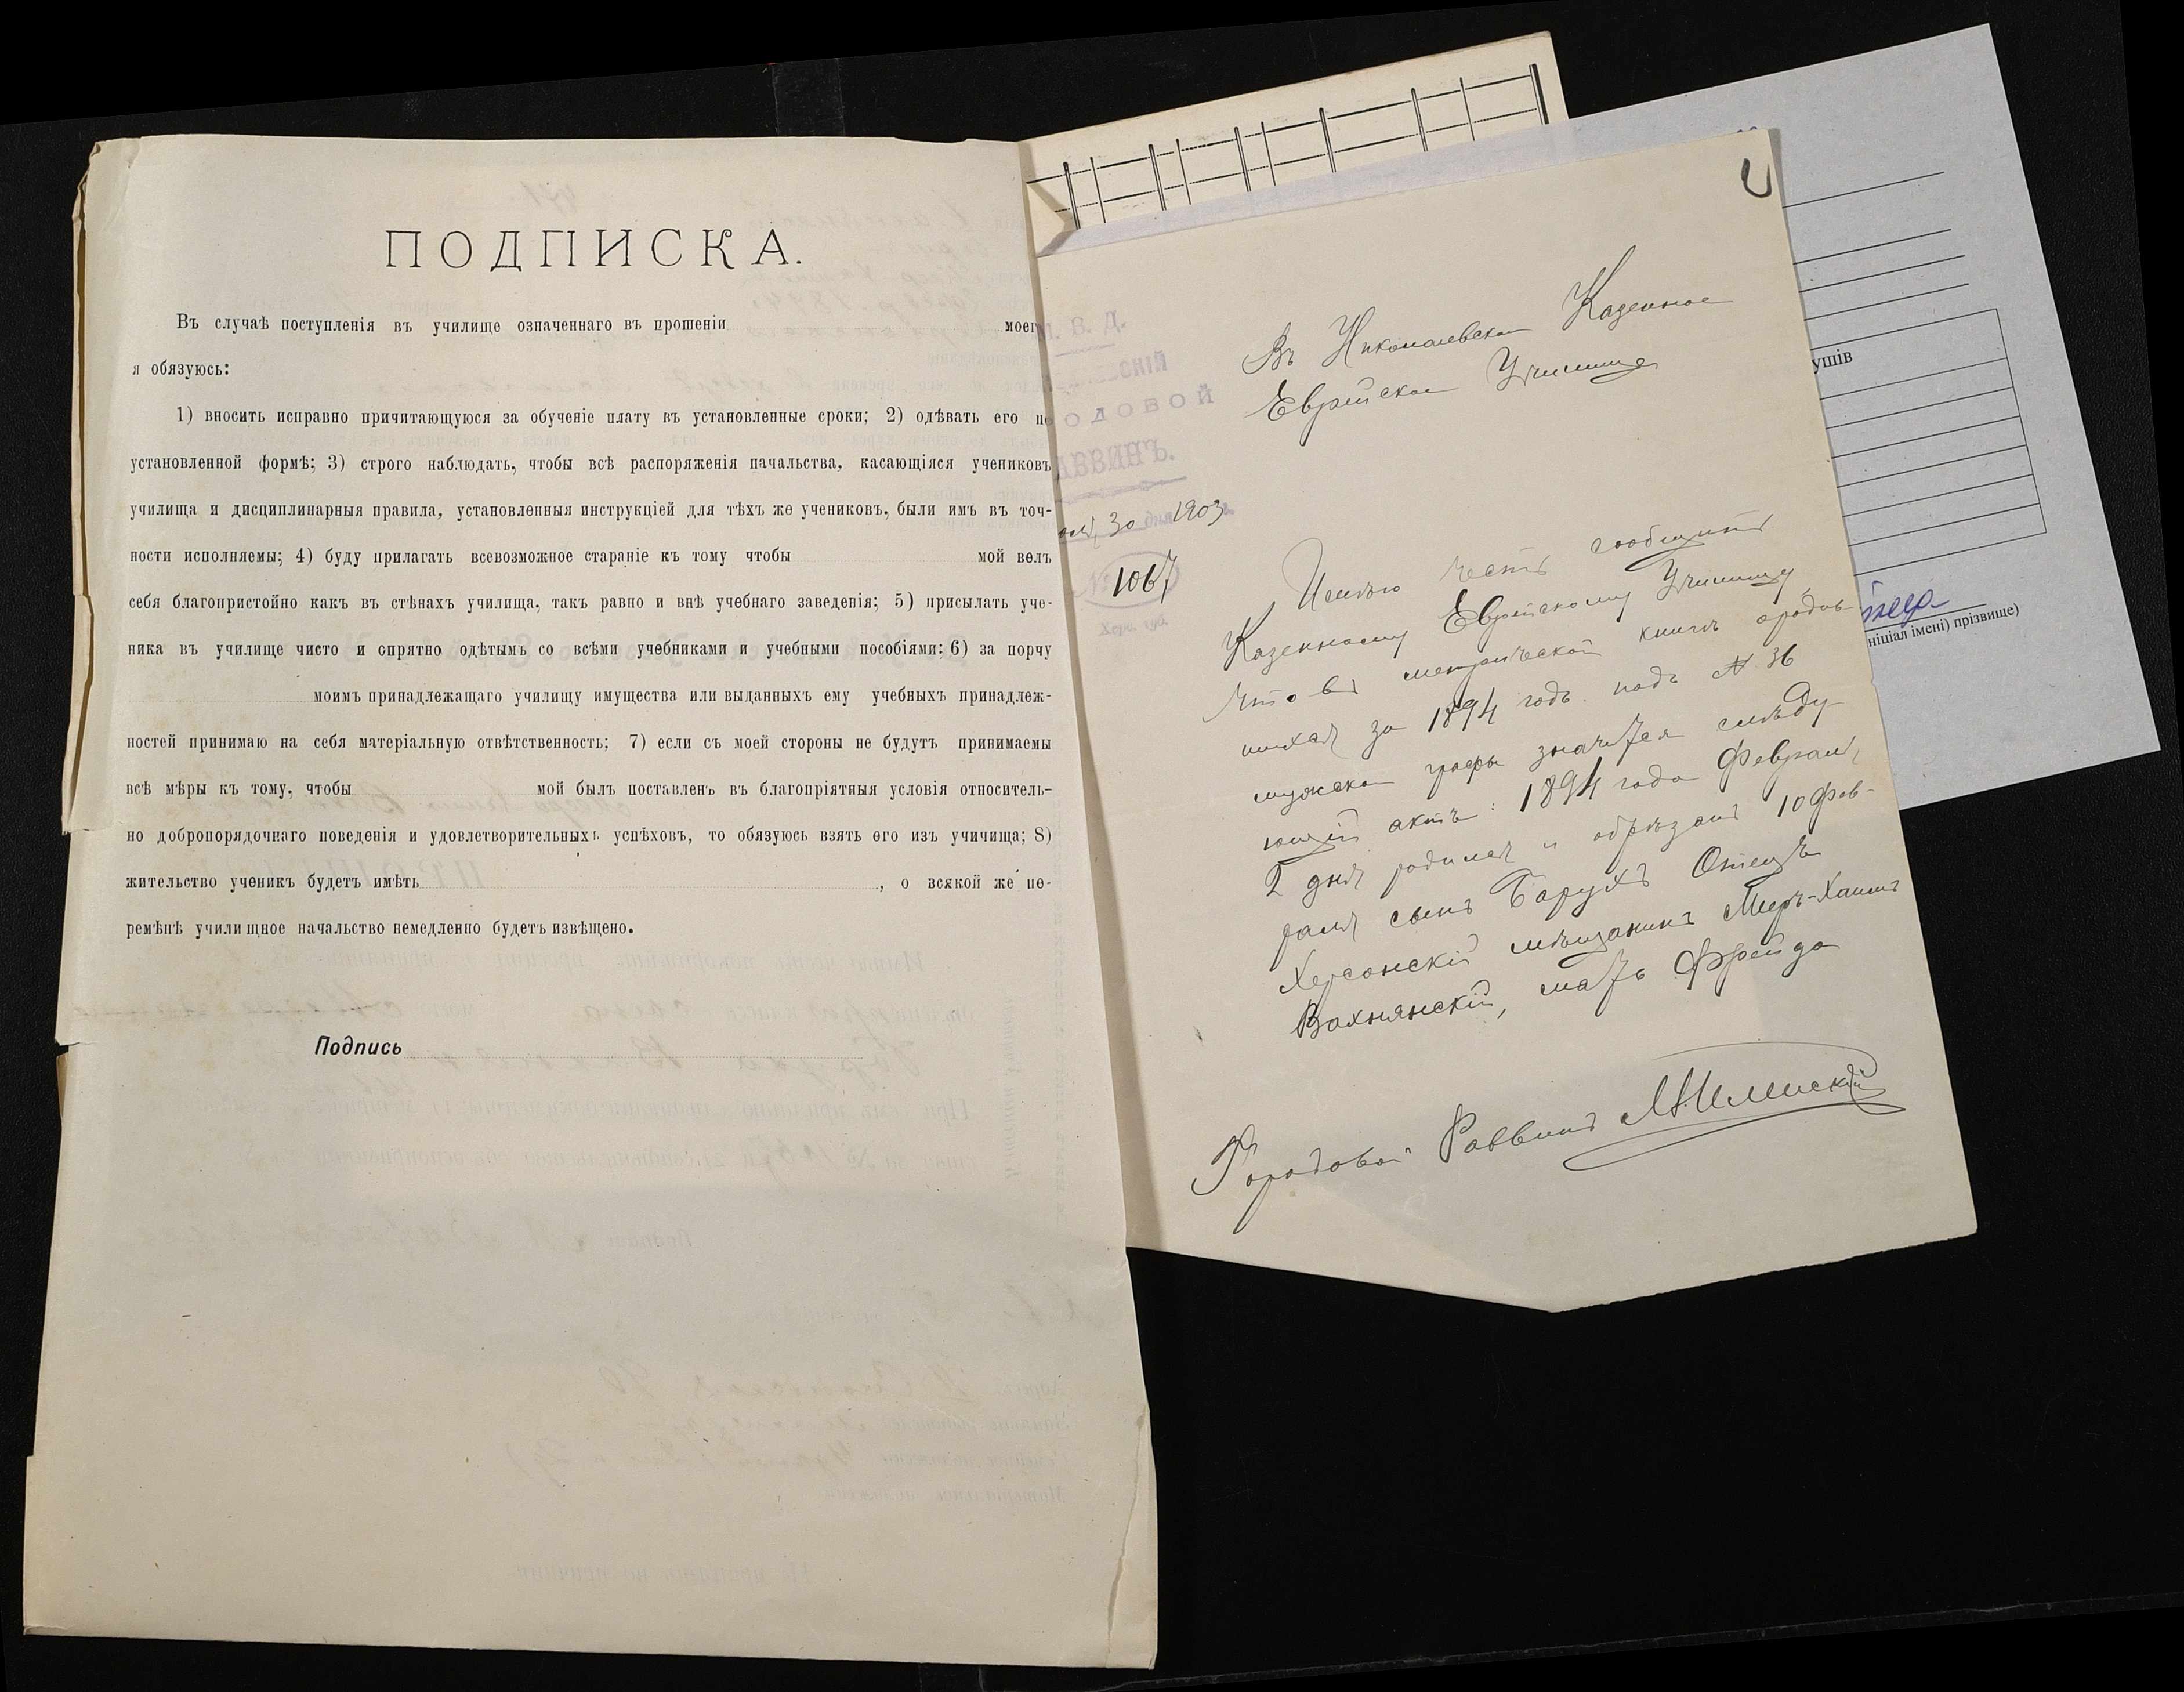 ПОДПИСКА.
Въ случаѣ поступленія въ училище означеннаго въ прошеніи моего
я обязуюсь:
1) вносить исправно причитающуюся за обученіе плату въ установленные сроки; 2) одѣвать его по
установленной формѣ; 3) строго наблюдать, чтобы всѣ распоряженія начальства, касающіяся учениковъ
училища и дисциплинарныя правила, установленныя инструкціей для тѣхъ же учениковъ, были имъ въ точ-
ности исполняемы; 4) буду прилагать всевозможное стараніе къ тому чтобы мой велъ
себя благопристойно какъ въ стѣнахъ училища, такъ равно и внѣ учебнаго заведенія; 5) присылать уче-
ника въ училище чисто и опрятно одѣтымъ со всѣми учебниками и учебными пособіями: 6) за порчу
моимъ принадлежащаго училищу имущества или выданныхъ ему учебныхъ принадлеж-
ностей принимаю на себя матеріальную отвѣтственность; 7) если съ моей стороны не будутъ принимаемы
всѣ мѣры къ тому, чтобы мой былъ поставленъ въ благопріятныя условія относитель-
но добропорядочнаго поведенія и удовлетворительныхъ успѣховъ, то обязуюсь взять его изъ учичища; 8)
жительство ученикъ будетъ имѣть , о всякой же пе-
ремѣнѣ училищное начальство немедленно будетъ извѣщено.
Подпись
М. В. Д.
скій
одовой
аввинъ.
30 дня 1903
№ 1067
Херс. губ.
Въ Николаевское Казенное
Еврейское Училище
Имѣю честь сообщить
Казенному Еврейскому Училищу
что въ метрической книгѣ о родив-
шихся за 1894 годъ подъ № 36
мужской графы значится слѣду-
ющій актъ: 1894 года Февраля
2 дня родился и обрѣзанъ 10 Фев-
раля сынъ Барухъ Отецъ
Херсонскій мѣщанинъ Меръ-Хаимъ
Вахнянскій, мать Фрейда
Городовой Раввинъ
ушів
ніціал імені) прізвище)